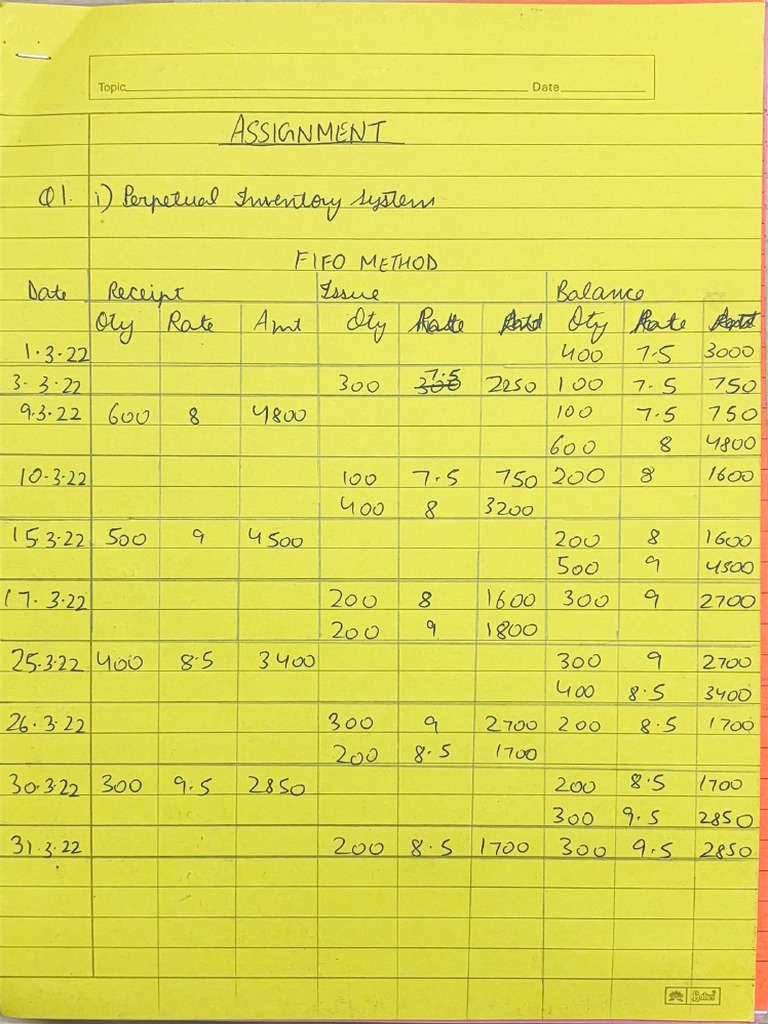 Topic Date
ASSIGNMENT
Q1. i) Perpetual Inventory System
FIFO METHOD
Date Receipt Issue Balance
Qty Rate Amt Qty Rate Qty Rate
1.3.22 400 7.5 3000
3.3.22 300 7.5 2250 100 7.5 750
9.3.22 600 8 4800 100 7.5 750
600 8 4800
10.3.22 100 7.5 750 200 8 1600
400 8 3200
15.3.22 500 9 4500 200 8 1600
500 9 4500
17.3.22 200 8 1600 300 9 2700
200 9 1800
25.3.22 400 8.5 3400 300 9 2700
400 8.5 3400
26.3.22 300 9 2700 200 8.5 1700
200 8.5 1700
30.3.22 300 9.5 2850 200 8.5 1700
300 9.5 2850
31.3.22 200 8.5 1700 300 9.5 2850